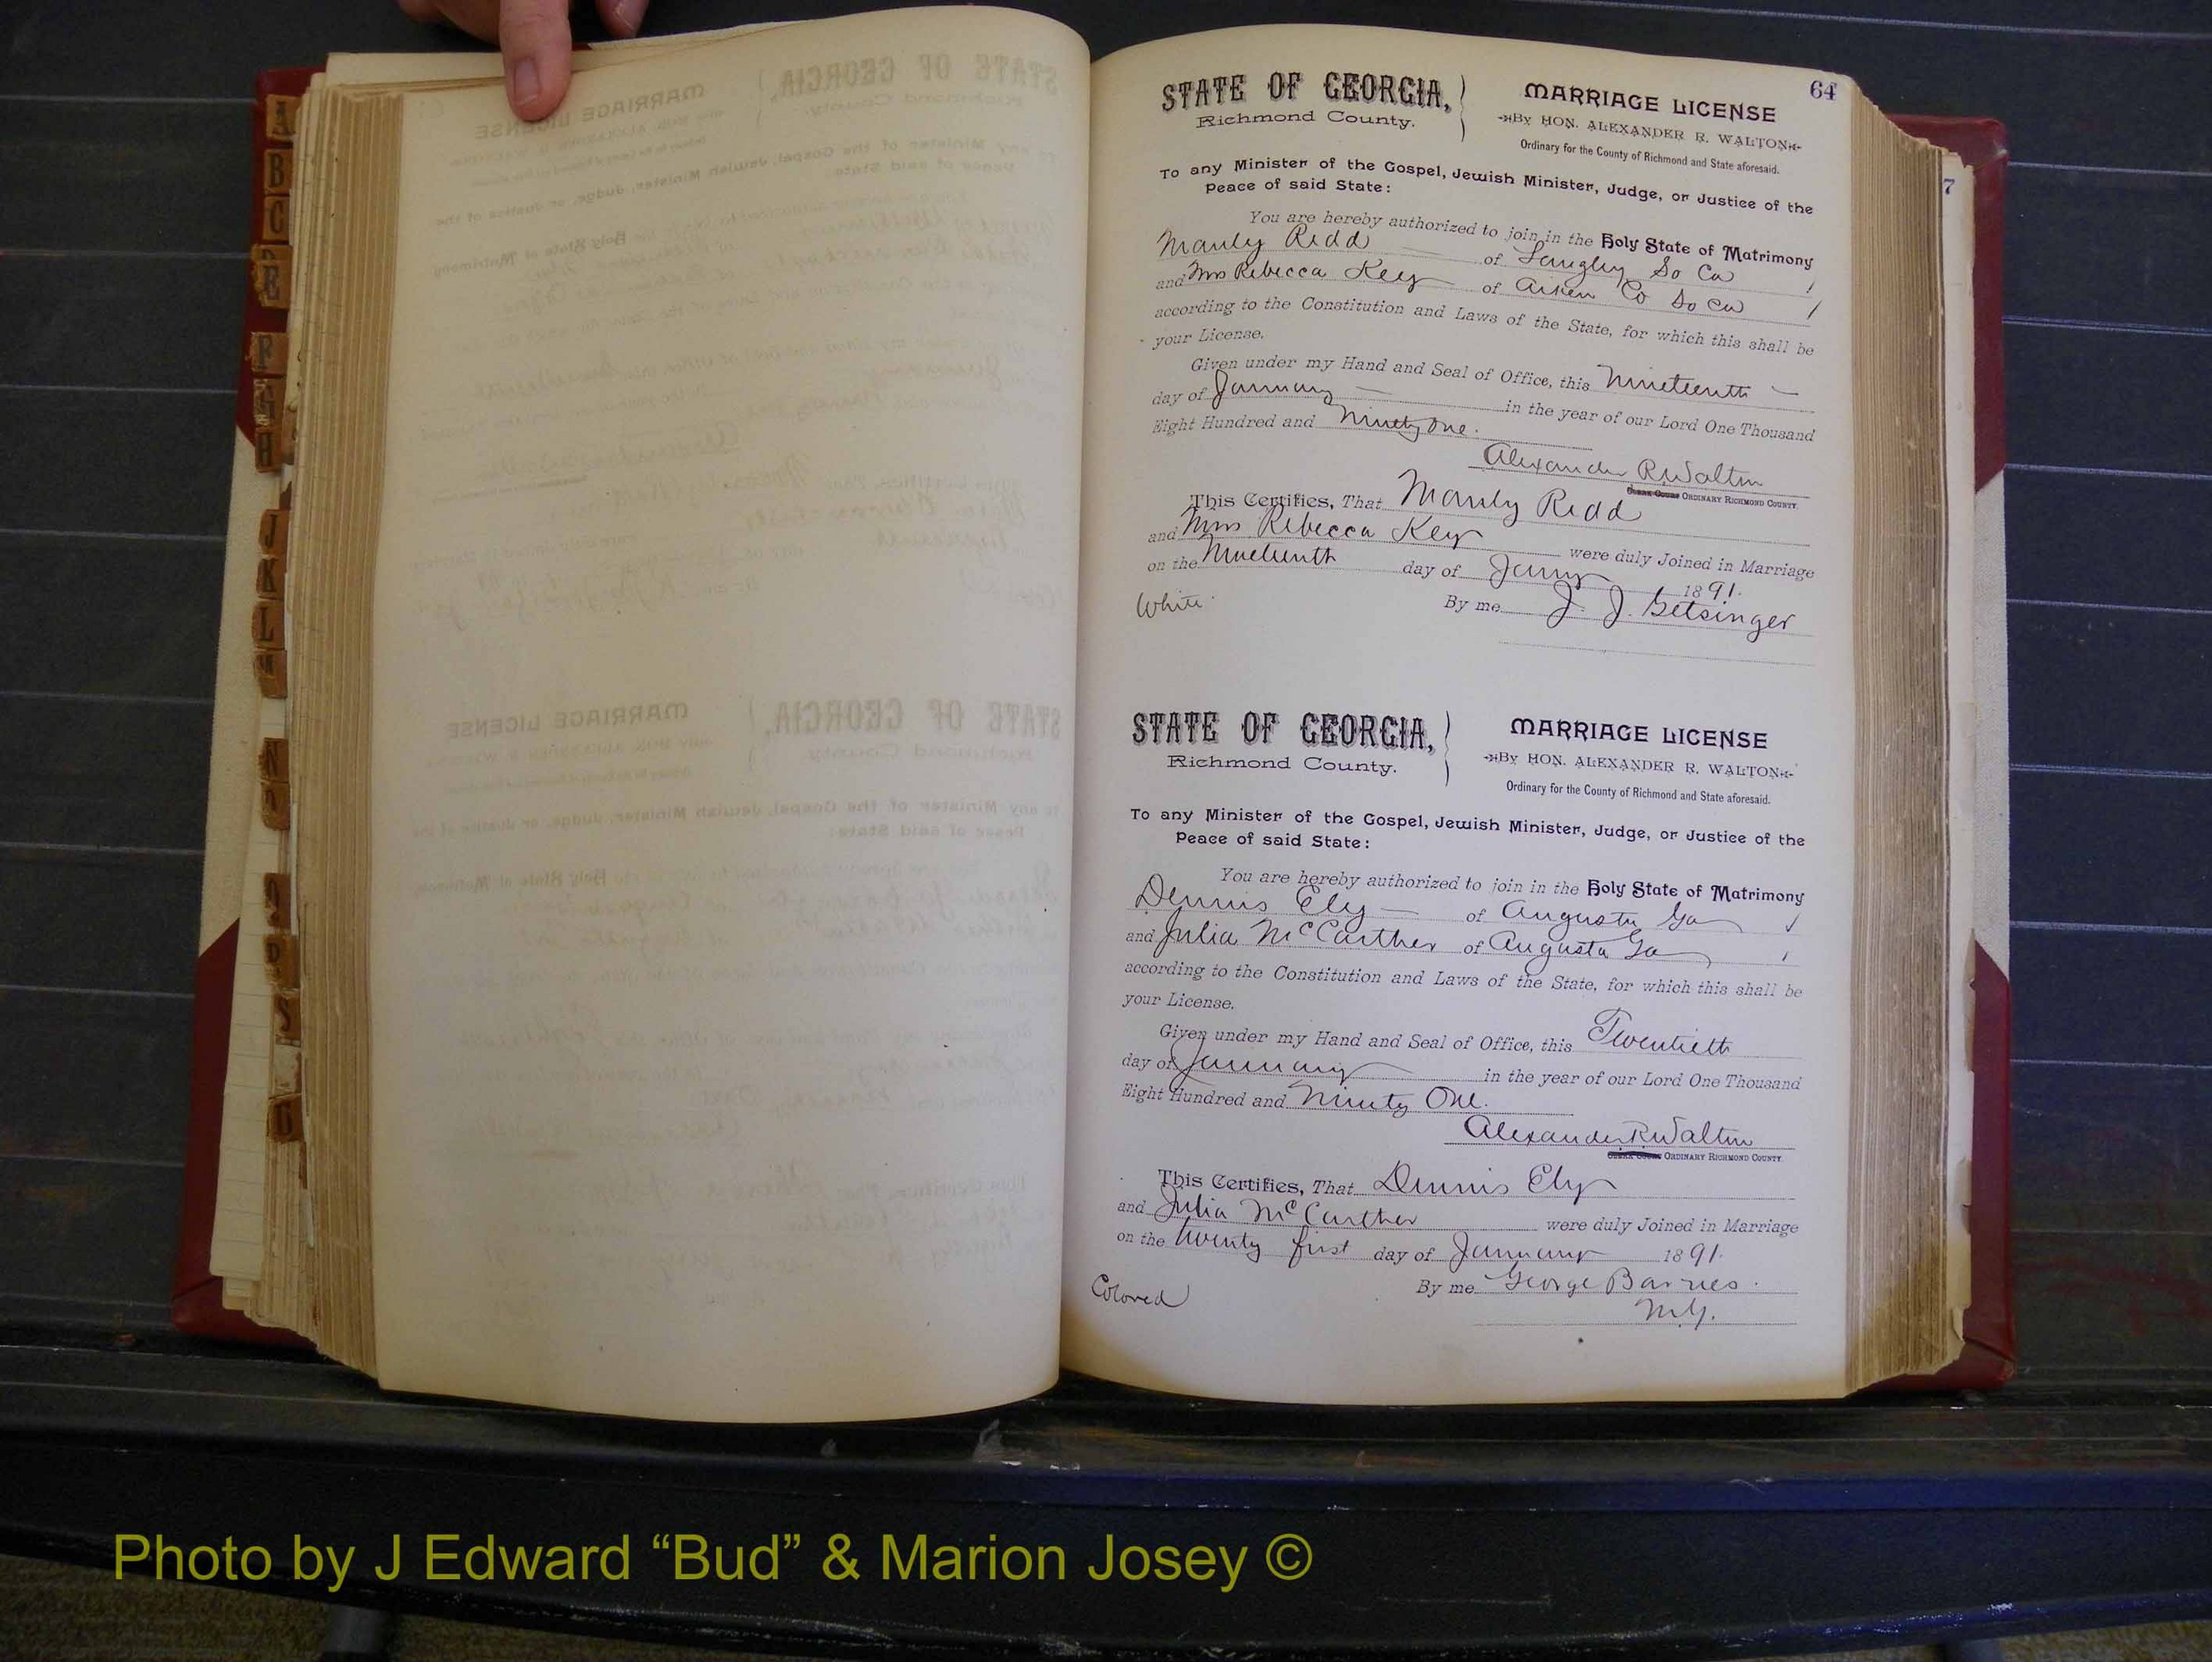 64
STATE OF GEORGIA,
Richmond County.
MARRIAGE LICENSE
By HON. ALEXANDER R. WALTON
Ordinary for the County of Richmond and State aforesaid.
To any Minister of the Gospel, Jewish Minister, Judge, or Justice of the
Peace of said State:
You are hereby authorized to join in the Holy State of Matrimony
Manly Redd of Langley So Ca
and Mrs Rebecca Key of Aiken Co So Ca
according to the Constitution and Laws of the State, for which this shall be
your License.
Given under my Hand and Seal of Office, this Nineteenth
day of January in the year of our Lord One Thousand
Eight Hundred and Ninety One.
Alexander R Walton
ORDINARY RICHMOND COUNTY.
This Certifies, That Manly Redd
and Mrs Rebecca Key were duly Joined in Marriage
on the Nineteenth day of Jany 1891.
White By me J. J. Getsinger
STATE OF GEORGIA,
Richmond County.
MARRIAGE LICENSE
By HON. ALEXANDER R. WALTON
Ordinary for the County of Richmond and State aforesaid.
To any Minister of the Gospel, Jewish Minister, Judge, or Justice of the
Peace of said State:
You are hereby authorized to join in the Holy State of Matrimony
Dennis Ely of Augusta Ga
and Julia McCarther of Augusta Ga
according to the Constitution and Laws of the State, for which this shall be
your License.
Given under my Hand and Seal of Office, this Twentieth
day of January in the year of our Lord One Thousand
Eight Hundred and Ninety One.
Alexander R Walton
ORDINARY RICHMOND COUNTY.
This Certifies, That Dennis Ely
and Julia McCarther were duly Joined in Marriage
on the twenty first day of January 1891.
Colored By me George Barnes.
M.G.
7
A
B
C
E
F
G
H
J
K
L
M
N
O
P
S
Photo by J Edward “Bud” & Marion Josey ©